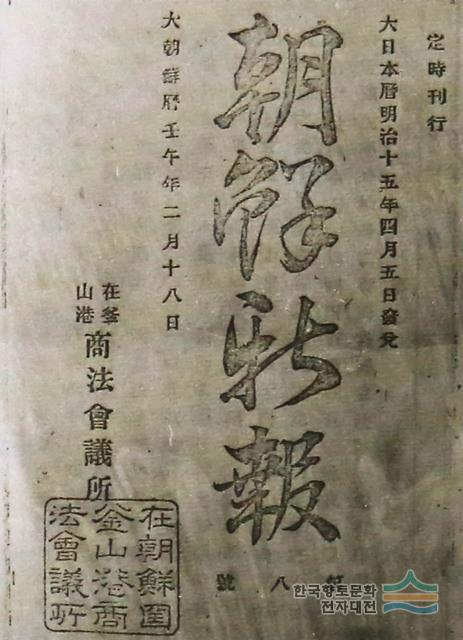 定時刊行
大日本曆明治十五年四月五日發兌
朝鮮新報
第八號
大朝鮮曆壬午年二月十八日
在釜山港
商法會議所
在朝鮮國
釜山港商
法會議所
한국향토문화
전자대전